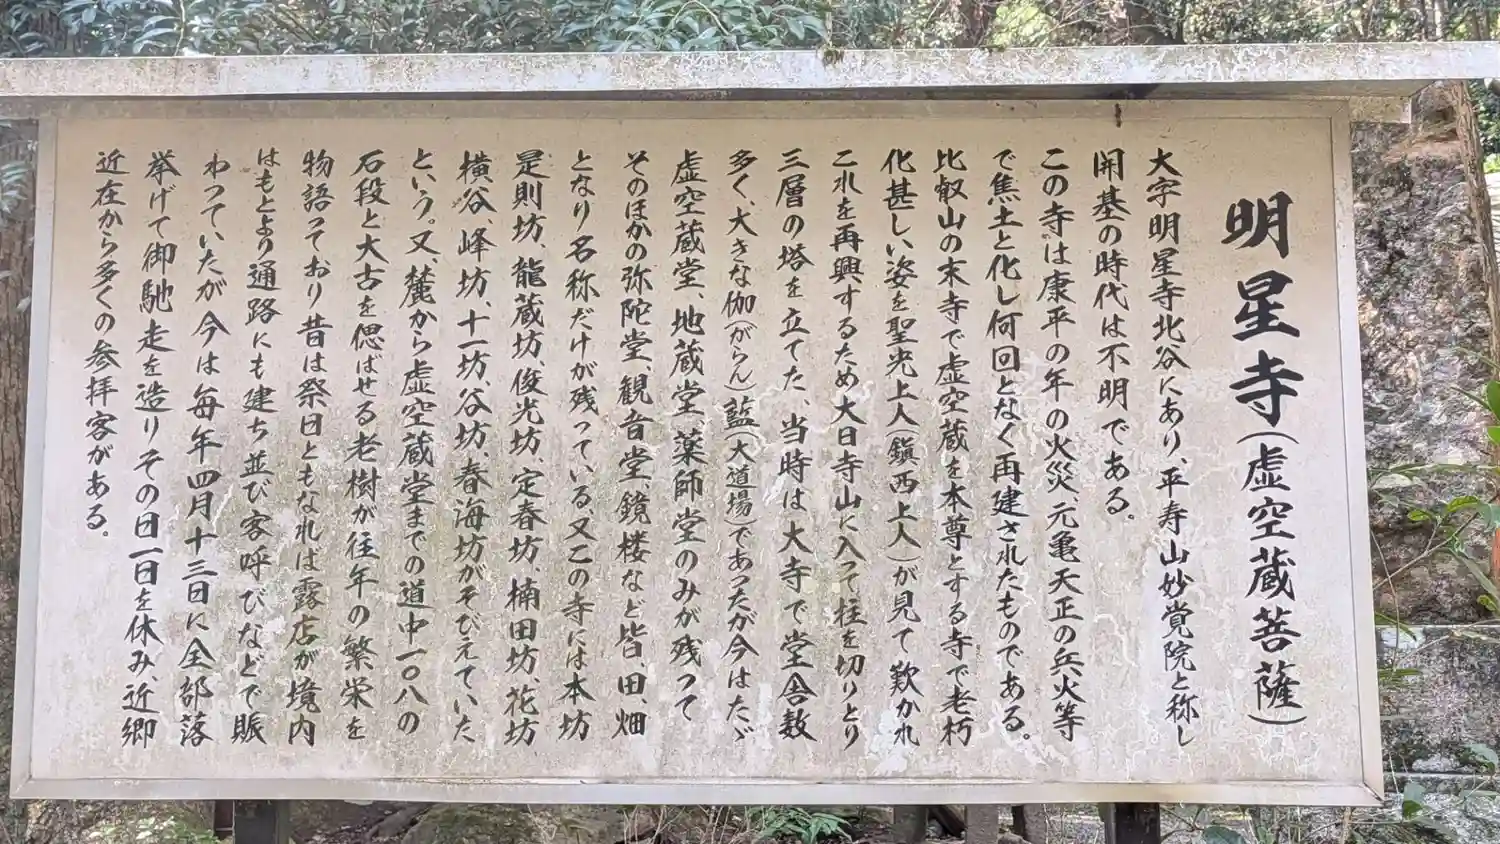 明星寺(虚空蔵菩薩)
大字明星寺北谷にあり、平寿山妙覚院と称し
開基の時代は不明である。
この寺は康平の年の火災、元亀天正の兵火等
で焦土と化し何回となく再建されたものである。
比叡山の末寺で虚空蔵を本尊とする寺で老朽
化甚しい姿を聖光上人(鎮西上人)が見て歎かれ
これを再興するため大日寺山に入って柱を切りとり
三層の塔を立てた、当時は大寺で堂舎数
多く、大きな伽(がらん)藍(大道場)であったが今はたゞ
虚空蔵堂、地蔵堂、薬師堂のみが残って
そのほかの弥陀堂、観音堂、鏡楼など皆、田、畑
となり名称だけが残っている、又この寺には本坊
是則坊、龍蔵坊、俊光坊、定春坊、楠田坊、花坊
横谷、峰坊、十一坊、谷坊、春海坊がそびえていた
という。又、麓から虚空蔵堂までの道中一〇八の
石段と大古を偲ばせる老樹が往年の繁栄を
物語っており昔は祭日ともなれば露店が境内
はもとより通路にも建ち並び客呼びなどで賑
わっていたが今は毎年四月十三日に全部落
挙げて御馳走を造りその日一日を休み、近郷
近在から多くの参拝客がある。